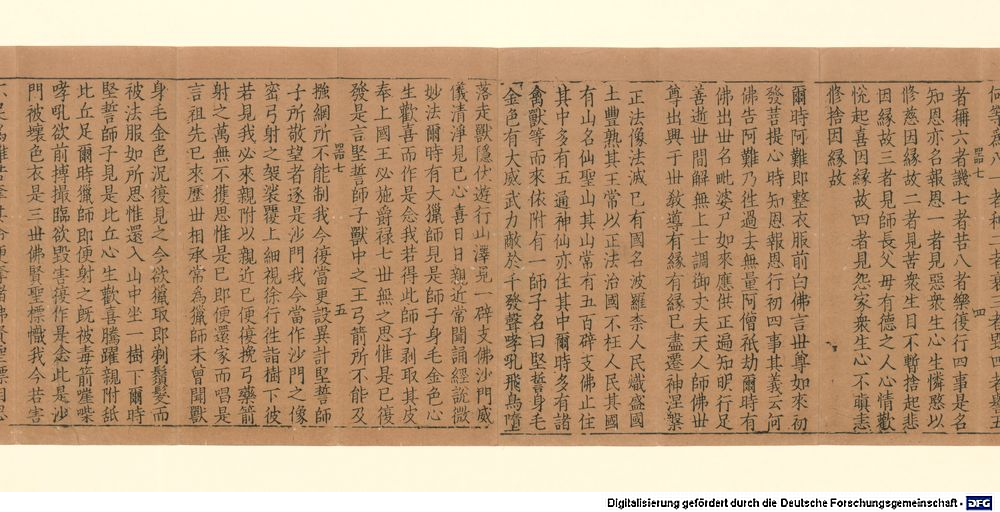 器七 四
者稱六者譏七者苦八者樂復行四事是名
知恩亦名報恩一者見惡衆生心生憐愍以
修慈因緣故二者見苦衆生目不暫捨起悲
因緣故三者見師長父母有德之人心情歡
恱起喜因緣故四者見怨家衆生心不瞋恚
修捨因緣故
爾時阿難即整衣服前白佛言世尊如來初
發菩提心時知恩報恩行初四事其義云何
佛告阿難乃往過去無量阿僧祇劫爾時有
佛出世名毗婆尸如來應供正遍知明行足
善逝世間解無上士調御丈夫天人師佛世
尊出興于世教導有緣有緣已盡遷神涅槃
正法像法滅已有國名波羅柰人民熾盛國
土豐熟其王常以正法治國不枉人民其國
有山名仙聖山其山常有五百辟支佛止住
其中多有五通神仙亦住其中爾時多有諸
禽獸等而來依附有一師子名曰堅誓身毛
金色有大威武力敵於千發聲哮吼飛鳥墮
落走獸隱伏遊行山澤見一辟支佛沙門威
儀清淨見已心喜日日親近常聞誦經說微
妙法爾時有大獵師見是師子身毛金色心
生歡喜而作是念我若得此師子剥取其皮
奉上國王必施爵禄七世無乏思惟是已復
發是言堅誓師子獸中之王弓箭所不能及
器七 五
摾網所不能制我今復當更設異計堅誓師
子所敬望者逐是沙門我今當作沙門之像
密弓射之袈裟覆上細視徐行往詣樹下彼
若見我必來親附以親近已便復挽弓藥箭
射之萬無不獲思惟是已即便還家而唱是
言祖先已來歷世相承常為獵師未曾聞獸
身毛金色況復見之今欲獵取即剃鬚髮而
被法服如所思惟還入山中坐一樹下爾時
堅誓師子見是比丘心生歡喜騰躍親附舐
比丘足爾時獵師即便射之既被毒箭
哮吼欲前搏撮臨欲毀害復作是念此是沙
門被壞色衣是三世佛賢聖標幟我今若害
Digitalisierung gefördert durch die Deutsche Forschungsgemeinschaft - DFG